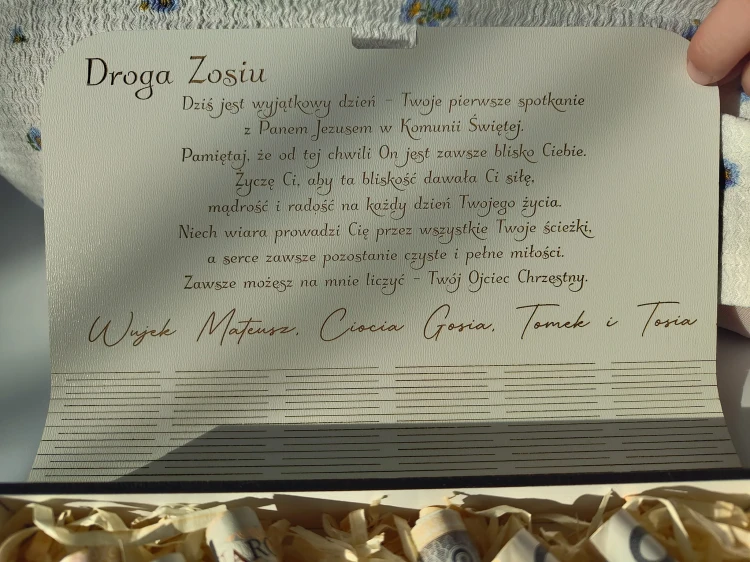 Droga Zosiu
Dziś jest wyjątkowy dzień - Twoje pierwsze spotkanie
z Panem Jezusem w Komunii Świętej.
Pamiętaj, że od tej chwili On jest zawsze blisko Ciebie.
Życzę Ci, aby ta bliskość dawała Ci siłę,
mądrość i radość na każdy dzień Twojego życia.
Niech wiara prowadzi Cię przez wszystkie Twoje ścieżki,
a serce zawsze pozostanie czyste i pełne miłości.
Zawsze możesz na mnie liczyć - Twój Ojciec Chrzestny.
Wujek Mateusz, Ciocia Gosia, Tomek i Tosia